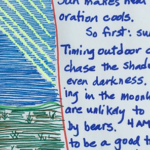 Sun makes heat
oration cools.
So first: su
Timing outdoor c
chase the Shado
even darkness.
ing in the moonli
are unlikely to
by bears. 4 AM
to be a good t